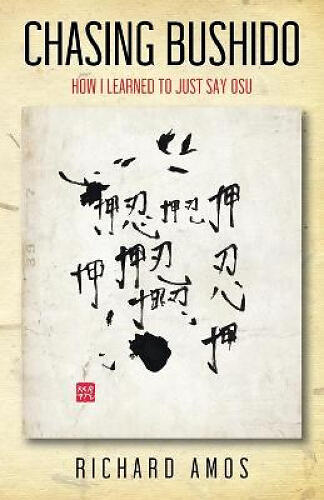 CHASING BUSHIDO
HOW I LEARNED TO JUST SAY OSU
押忍 押忍 押
押 押忍 忍
押忍 押
RICHARD AMOS